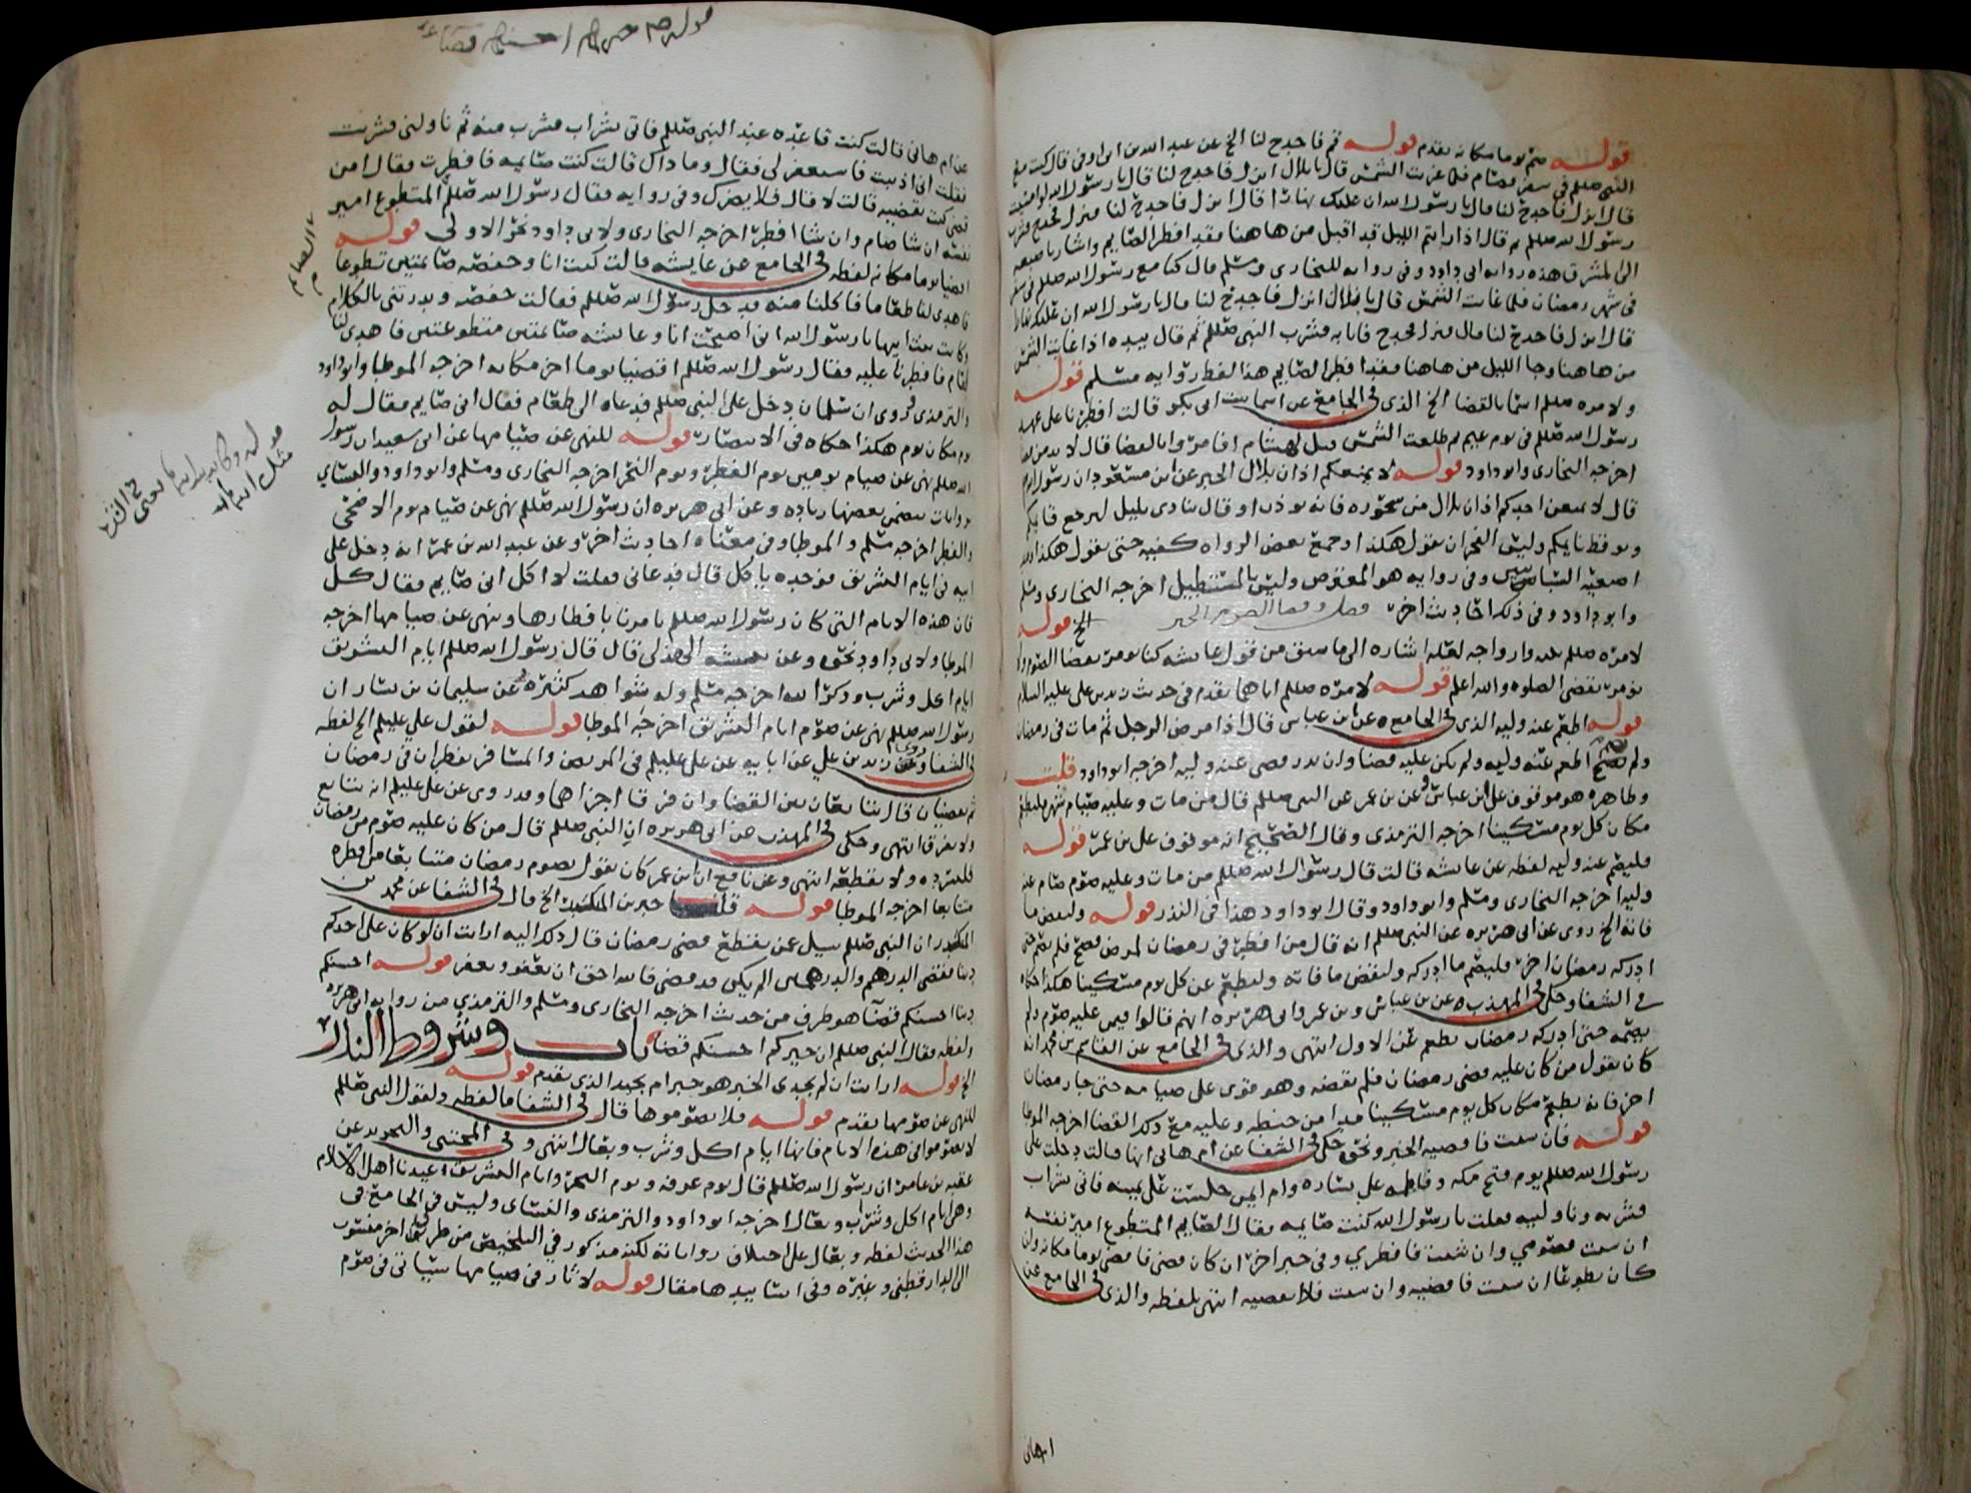 قوله صم يوما مكانه تقدم قوله قم فاجدح لنا الخ عن عبد الله بن ابي اوفى قال كنت مع
النبي صللم في سفر فصام فلما غربت الشمس قال يا بلال انزل فاجدح لنا قال يا رسول الله لو امسيت
قال انزل فاجدح لنا قال يا رسول الله ان عليك نهارا قال انزل فاجدح لنا فنزل فجدح فشرب
رسول الله صللم ثم قال اذا رايتم الليل قد اقبل من هاهنا فقد افطر الصايم واشار باصبعه
الى المشرق هذه روايه ابي داود وفي روايه للبخاري ومسلم قال كنا مع رسول الله صللم في سفر
في شهر رمضان فلما غابت الشمس قال يا بلال انزل فاجدح لنا قال يا رسول الله ان عليك نهارا
قال انزل فاجدح لنا قال فنزل فجدح فاتا به فشرب النبي صللم ثم قال بيده اذا غابت الشمس
من هاهنا وجا الليل من هاهنا فقد افطر الصايم هذا لفظ روايه مسلم قوله
ولامره صللم اسما بالقضا الخ الذي في الجامع عن اسما بنت ابي بكر قالت افطرنا على عهد
رسول الله صللم في يوم غيم ثم طلعت الشمس قيل لهشام افامروا بالقضا قال لا بد من قضا
اخرجه البخاري وابو داود قوله لا يمنعكم اذان بلال الخبر عن ابن مسعود ان رسول الله
قال لا يمنعن احدكم اذان بلال من سحوره فانه يوذن او قال ينادي بليل ليرجع قايمكم
ويوقظ نايمكم وليس الفجر ان يقول هكذا وجمع بعض الرواه كفيه حتى يقول هكذا ومد
اصبعيه السبابتين وفي روايه هو المعترض وليس بالمستطيل اخرجه البخاري ومسلم
وابو داود وفي ذلك احاديث اخر فصل وقضا الصوم الخبر الخ قوله
لامره صللم بناته وازواجه لعله اشاره الى ما سبق من قول عايشه كنا نومر بقضا الصوم ولا
نومر بقضى الصلوه والله اعلم قوله لامره صللم اياهما تقدم في حديث زيد بن علي عليه السلام
قوله اطعم عنه وليه الذي في الجامع عن ابن عباس قال اذا مرض الرجل ثم مات في رمضان
ولم يصح اطعم عنه وليه ولم يكن عليه قضا وان نذر قضى عنه وليه اخرجه ابو داود قلت
وظاهره هو موقوف على ابن عباس وعن بن عمر عن النبي صللم قال من مات وعليه صيام شهر فليطعم
مكان كل يوم مسكينا اخرجه الترمذي وقال الصحيح انه موقوف على بن عمر قوله
فليصم عنه وليه لفظه عن عايشه قالت قال رسول الله صللم من مات وعليه صوم صام عنه
وليه اخرجه البخاري ومسلم وابو داود وقال ابو داود هذا في النذر قوله وليقض ما
فاته الخ روى عن ابي هريره عن النبي صللم انه قال من افطر في رمضان لمرض فصح فلم يصم حتى
ادركه رمضان اخر فليصم ما ادركه وليقض ما فاته وليطعم عن كل يوم مسكينا هكذا حكاه
في الشفا وحكى في المهذب عن بن عباس وبن عمر وابي هريره انهم قالوا فيمن عليه صوم ولم
يصمه حتى ادركه رمضان يطعم عن الاول انتهى والذي في الجامع عن القاسم بن محمد انه
كان يقول من كان عليه قضى رمضان فلم يقضه وهو قوى على صيامه حتى جا رمضان
اخر فانه يطعم مكان كل يوم مسكينا مدا من حنطه وعليه مع ذلك القضا اخرجه الموطا
قوله فان شيت فاقضيه الخبر ونحوه حكى في الشفا عن ام هاني انها قالت دخلت على
رسول الله صللم يوم فتح مكه وفاطمه على يساره وام هاني جلست على يمينه فاتى بشراب
فشربه وناولنيه فقلت يا رسول الله كنت صايمه فقال الصايم المتطوع امير نفسه
ان شيت فصومي وان شيت فافطري وفي خبر اخر ان كان قضى فاقضي يوما مكانه وان
كان تطوعا ان شيت فاقضيه وان شيت فلا تقضيه انتهى بلفظه والذي في الجامع عن
ام هاني
عن ام هاني قالت كنت قاعده عند النبي صللم فاتي بشراب فشرب منه ثم ناولني فشربت
فقلت اني اذنبت فاستغفر لي فقال وما ذاك قالت كنت صايمه فافطرت فقال امن
قضى كنت تقضيه قالت لا قال فلا يضرك وفي روايه فقال رسول الله صللم المتطوع امير
نفسه ان شا صام وان شا افطر اخرجه البخاري ولابي داود نحو الاولى قوله
اقضيا يوما مكانه لفظه في الجامع عن عايشه قالت كنت انا وحفصه صايمتين تطوعا
فاهدى لنا طعاما فاكلنا منه فدخل رسول الله صللم فقالت حفصه وبدرتني بالكلام
وكانت بنت ابيها يا رسول الله اني اصبحت انا وعايشه صايمتين متطوعتين فاهدى لنا
طعام فافطرنا عليه فقال رسول الله صللم اقضيا يوما اخر مكانه اخرجه الموطا وابو داود
والترمذي وروى ان سلمان دخل على النبي صللم فدعاه الى طعام فقال اني صايم فقال له
يوم مكان يوم هكذا حكاه في الانتصار قوله للنهي عن صيامها عن ابي سعيد ان رسول
الله صللم نهى عن صيام يومين يوم الفطر ويوم النحر اخرجه البخاري ومسلم وابو داود والنسائي
بروايات يتضمن بعضها زياده وعن ابي هريره ان رسول الله صللم نهى عن صيام يوم الاضحى
والفطر اخرجه مسلم والموطا وفي معناه احاديث اخر وعن عبد الله بن عمر انه دخل على
ابيه في ايام التشريق فوجده ياكل قال فدعاني فقلت لا اكل اني صايم فقال كل
فان هذه الايام التي كان رسول الله صللم يامرنا بافطارها وينهى عن صيامها اخرجه
الموطا ولابي داود نحوه وعن نبيشه الهذلي قال قال رسول الله صللم ايام التشريق
ايام اكل وشرب وذكر الله اخرجه مسلم وله شواهد كثيره وعن سليمان بن يسار ان
رسول الله صللم نهى عن صوم ايام التشريق اخرجه الموطا قوله لقول علي عليلم الخ لفظه
في الشفا وروى زيد بن علي عن ابايه عن علي عليلم في المريض والمسافر يفطران في رمضان
ثم يقضيان قال يتابعان بين القضا وان فرقا اجزاهما وقد روى عن علي عليلم انه يتابع
ولا يفرق انتهى وحكى في المهذب عن ابي هريره ان النبي صللم قال من كان عليه صوم من رمضان
فليسرده ولا يقطعه انتهى وعن نافع ان ابن عمر كان يقول يصوم رمضان متتابعا من افطره
متتابعا اخرجه الموطا قوله قلنا خبر بن المنكدر الخ قال في الشفا عن محمد بن
المنكدر ان النبي صللم سيل عمن يقطع قضى رمضان قال ذلك اليه ارايت ان لو كان على احدكم
دينا فقضى الدرهم والدرهمين الم يكن قد قضى فالله احق ان يعفو ويغفر قوله احسنكم
دينا احسنكم قضا هو طرف من حديث اخرجه البخاري ومسلم والترمذي من روايه ابي هريره
ولفظه فقال النبي صللم ان خيركم احسنكم قضا باب وشروط النذر
الخ قوله ارايت ان لم يجدي الخبر هو خبر ام بجيد الذي تقدم قوله
للنهي عن صومها تقدم قوله فلا تصوموها قال في الشفا ما لفظه ولقول النبي صللم
لا تصوموا في هذه الايام فانها ايام اكل وشرب وبعال انتهى وفي المجتبى والتجريد عن
عقبه بن عامر ان رسول الله صللم قال يوم عرفه ويوم النحر وايام التشريق عيدنا اهل الاسلام
وهي ايام اكل وشراب وبعال اخرجه ابو داود والترمذي والنسائي وليس في الجامع في
هذا الحديث لفظه وبعال على اختلاف رواياته لكنه مذكور في التلخيص من طرق اخر منسوب
الى الدارقطني وغيره وفي اسانيدها مقال قوله لاثار في صيامها سياتي في صوم